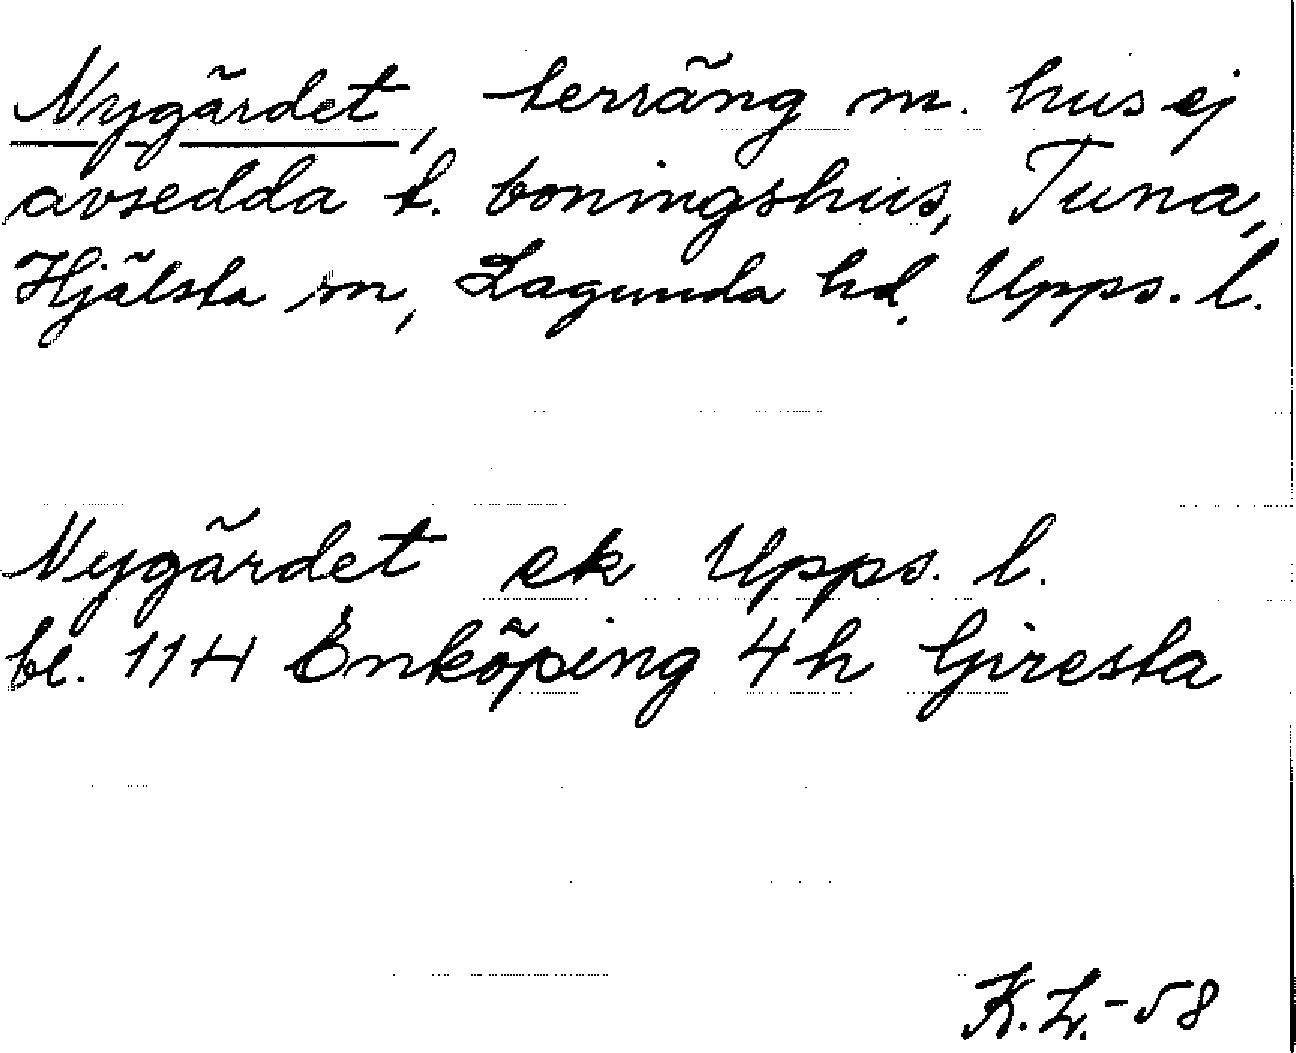 Nygärdet, terräng m. hus ej
avsedda t. boningshus, Tuna,
Hjälsta sn, Lagunda hd. Upps. l.
Nygärdet ek Upps. l.
bl. 11H Enköping 4h Giresta
K.L.-58